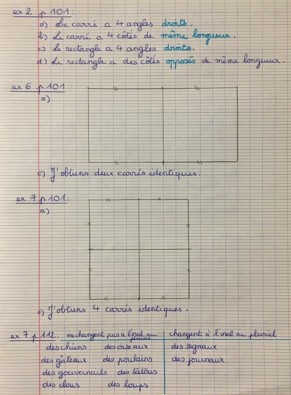 ex 2 p 101.
a) Le carré a 4 angles droits.
b) Le carré a 4 côtés de même longueur.
c) Le rectangle a 4 angles droits.
d) Le rectangle a des côtés opposés de même longueur.
ex 6 p 101
a)
c) J'obtiens deux carrés identiques.
ex 7 p 101.
a)
c) J'obtiens 4 carrés identiques.
ex 7 p 112. changent à l'oral au pluriel
des chiens des oiseaux des signaux
des gâteaux des poulains des journaux
des gouvernails des tatous
des clous des loups